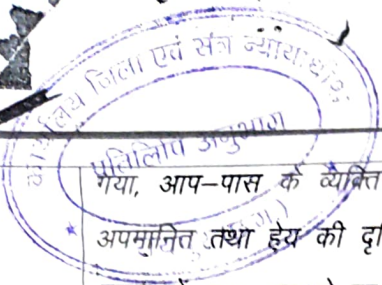 कार्यालय जिला एवं सत्र न्यायाधीश
प्रतिलिपि अनुभाग
गया, आप–पास के व्यक्ति
अपमानित तथा हेय की